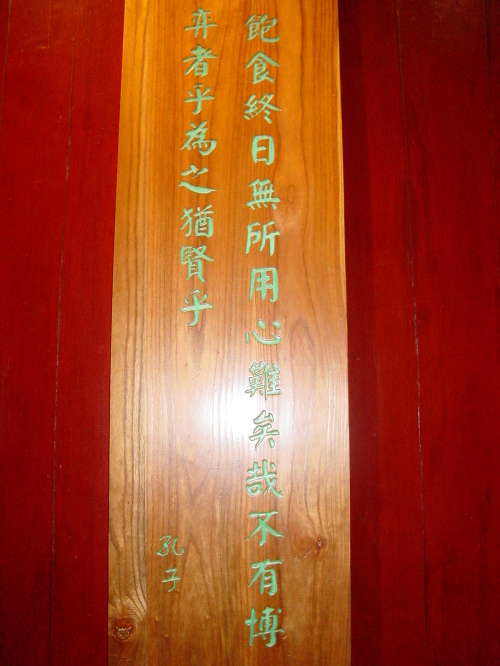 飽食終日無所用心難矣哉不有博
弈者乎為之猶賢乎
孔子